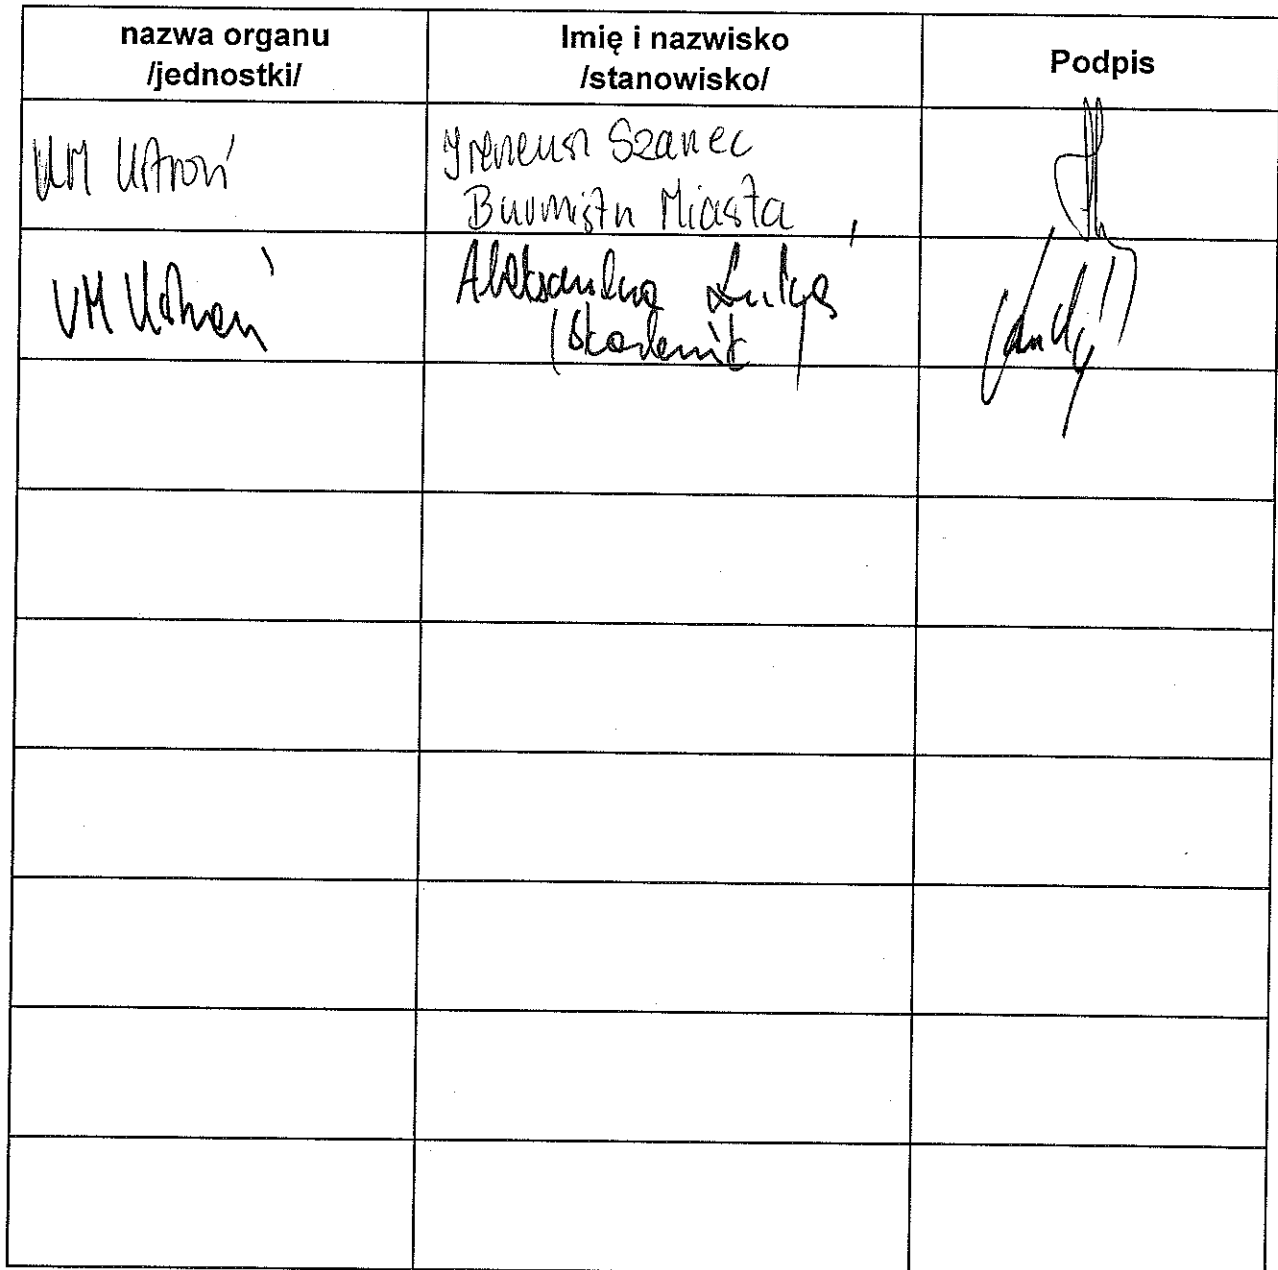 nazwa organu
/jednostki/
Imię i nazwisko
/stanowisko/
Podpis
UM Ustroń
Ireneusz Szarzec
Burmistrz Miasta
UM Ustroń
Aleksandra Łukoś
(Skarbnik)